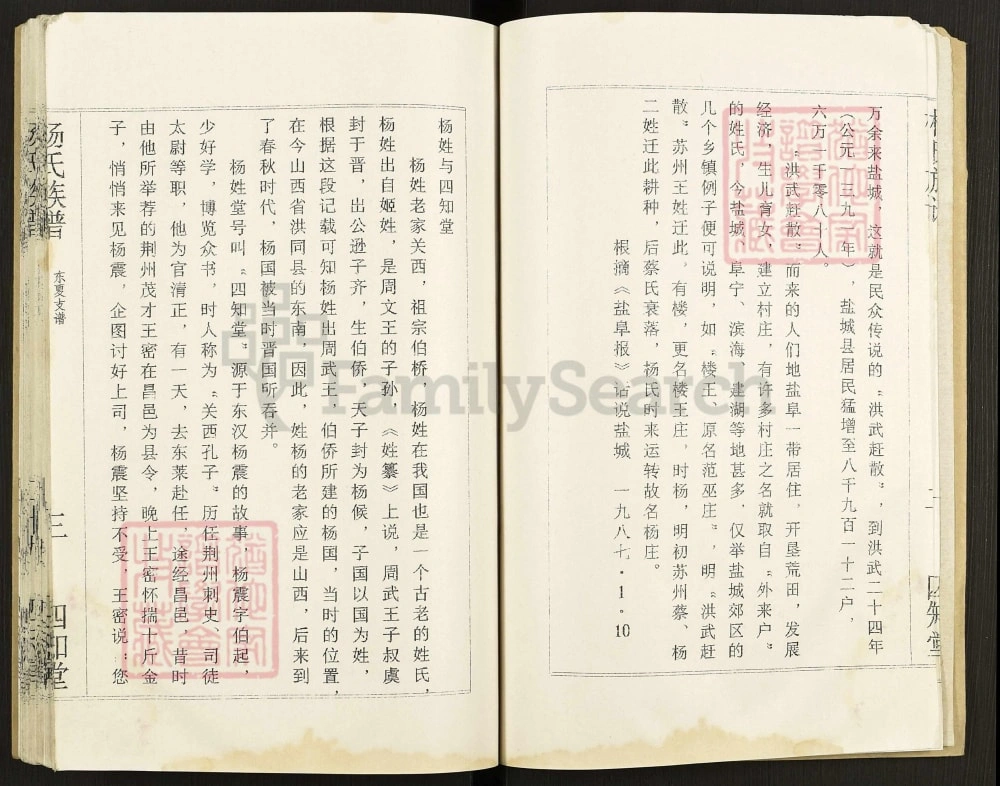 万余来盐城，这就是民众传说的“洪武赶散”，到洪武二十四年
（公元一三九一年），盐城县居民猛增至八千九百一十二户，
六万一千零八十人。
“洪武赶散”而来的人们地盐阜一带居住，开垦荒田，发展
经济，生儿育女，建立村庄，有许多村庄之名就取自“外来户”
的姓氏，今盐城、阜宁、滨海、建湖等地甚多，仅举盐城郊区的
几个乡镇例子便可说明，如“楼王、原名范巫庄”，明“洪武赶
散”苏州王姓迁此，有楼，更名楼王庄，时杨，明初苏州蔡、杨
二姓迁此耕种，后蔡氏衰落，杨氏时来运转故名杨庄。
根摘《盐阜报》话说盐城 一九八七·1·10
四知堂
杨姓与四知堂
杨姓老家关西，祖宗伯桥，杨姓在我国也是一个古老的姓氏，
杨姓出自姬姓，是周文王的子孙，《姓纂》上说，周武王子叔虞
封于晋，出公逊子齐，生伯侨，天子封为杨候，子国以国为姓，
根据这段记载可知杨姓出周武王，伯侨所建的杨国，当时的位置，
在今山西省洪同县的东南，因此，姓杨的老家应是山西，后来到
了春秋时代，杨国被当时晋国所吞并。
杨姓堂号叫“四知堂”源于东汉杨震的故事，杨震字伯起，
少好学，博览众书，时人称为“关西孔子”历任荆州刺史、司徒
太尉等职，他为官清正，有一天，去东莱赴任，途经昌邑，昔时
由他所举荐的荆州茂才王密在昌邑为县令，晚上王密怀揣十斤金
子，悄悄来见杨震，企图讨好上司，杨震坚持不受，王密说：您
杨氏族谱
东夏支谱
三
四知堂
FamilySearch